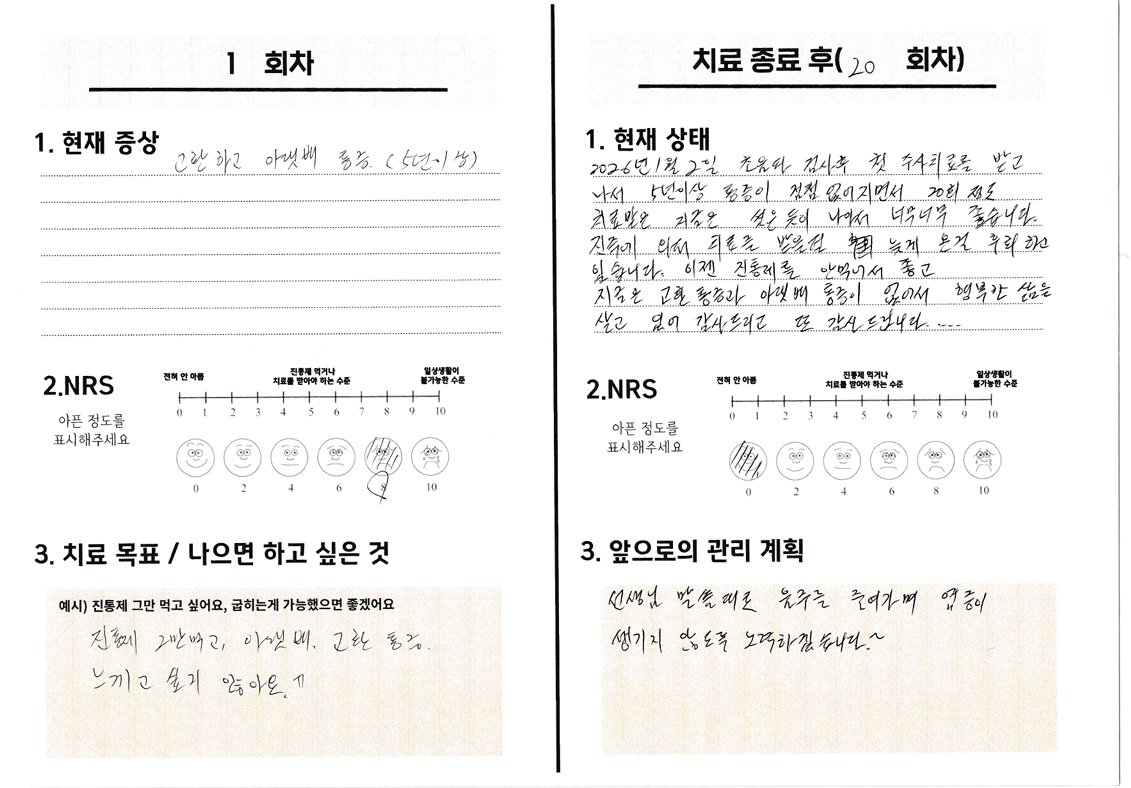 1 회차
1. 현재 증상
고환하고 아랫배 통증. (5년이상)
2.NRS
아픈 정도를
표시해주세요
전혀 안 아픔
진통제 먹거나
치료를 받아야 하는 수준
일상생활이
불가능한 수준
0 1 2 3 4 5 6 7 8 9 10
0 2 4 6 8 10
3. 치료 목표 / 나으면 하고 싶은 것
예시) 진통제 그만 먹고 싶어요, 굽히는게 가능했으면 좋겠어요
진통제 그만먹고, 아랫배. 고환 통증.
느끼고 싶지 않아요.ㅠ
치료 종료 후( 20 회차)
1. 현재 상태
2026년 1월 2일 초음파 검사후 첫 주사치료를 받고
나서 5년이상 통증이 점점 없어지면서 20회 정도
치료받은 지금은 씻은 듯이 나아서 너무너무 좋습니다.
진즉에 와서 치료를 받을걸 늦게 온걸 후회 하고
있습니다. 이젠 진통제를 안먹어서 좋고
지금은 고환통증과 아랫배 통증이 없어서 행복한 삶을
살고 있어 감사드리고 또 감사드립니다.....
2.NRS
아픈 정도를
표시해주세요
전혀 안 아픔
진통제 먹거나
치료를 받아야 하는 수준
일상생활이
불가능한 수준
0 1 2 3 4 5 6 7 8 9 10
0 2 4 6 8 10
3. 앞으로의 관리 계획
선생님 말씀대로 음주를 줄여가며 염증이
생기지 않도록 노력하겠습니다.~